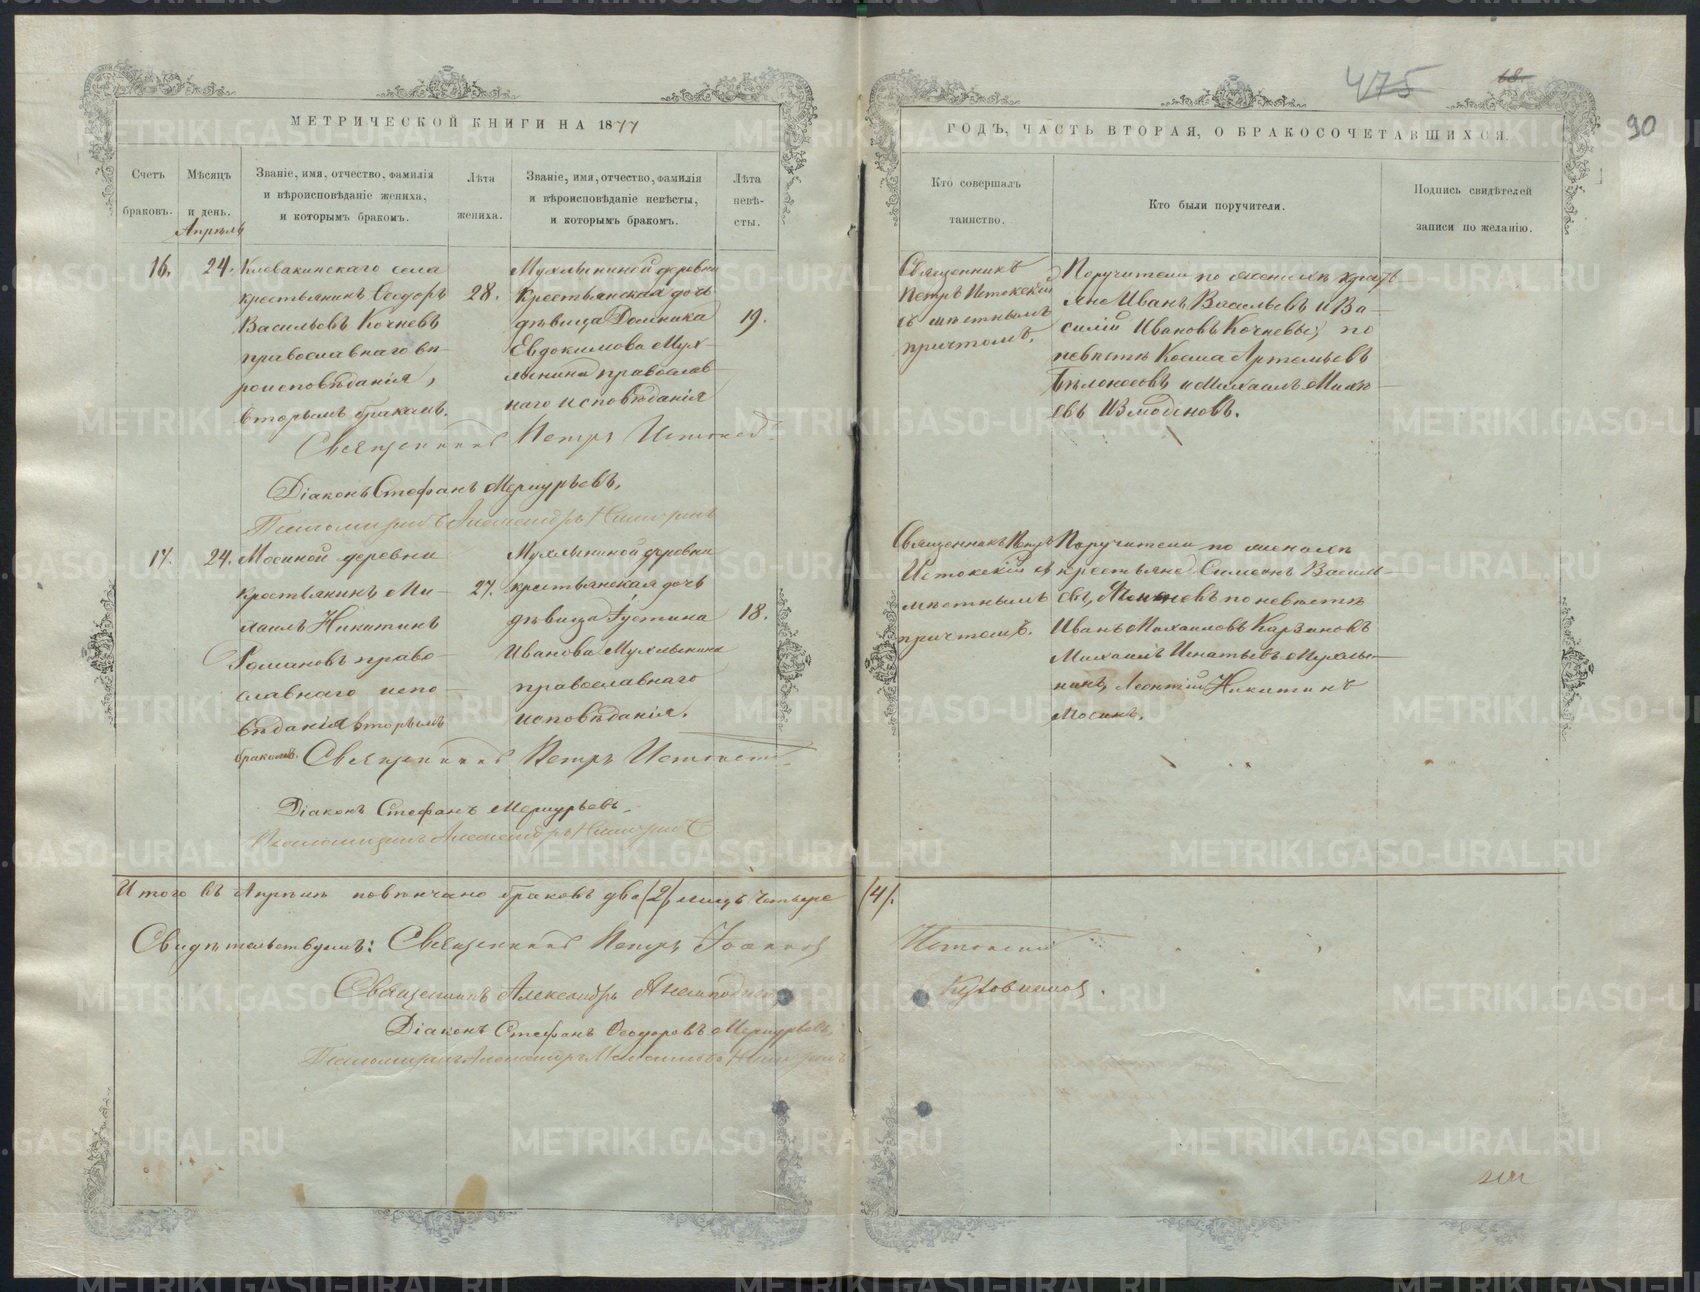 МЕТРИЧЕСКОЙ КНИГИ НА 1877
ГОДЪ, ЧАСТЬ ВТОРАЯ, О БРАКОСОЧЕТАВШИХСЯ.
475
68
90
Счетъ браковъ.
Мѣсяцъ и день.
Званіе, имя, отчество, фамилія
и вѣроисповѣданіе жениха,
и которымъ бракомъ.
Лѣта жениха.
Званіе, имя, отчество, фамилія
и вѣроисповѣданіе невѣсты,
и которымъ бракомъ.
Лѣта невѣ-сты.
Кто совершалъ таинство.
Кто были поручители.
Подпись свидѣтелей
записи по желанію.
Апрѣль
16.
24.
Клевакинскаго села
крестьянинъ Ѳедоръ
Васильевъ Кочневъ
православнаго вѣ-
роисповѣданія,
вторымъ бракомъ.
28.
Мухлыниной деревни
крестьянская дочь
дѣвица Домника
Евдокимова Мух-
лынина православ-
наго исповѣданія
19.
Священникъ
Петръ Истокскій
съ мѣстнымъ
причтомъ.
Поручители по женихѣ крестья-
не Иванъ Васильевъ и Ва-
силій Ивановъ Кочневы, по
невѣстѣ Косма Артемьевъ
Бѣлоносовъ и Михаилъ Михѣ-
евъ Измоденовъ.
Священникъ Петръ Истокскій
Діаконъ Стефанъ Меркурьевъ.
Псаломщикъ Александръ
17.
24.
Мосиной деревни
крестьянинъ Ми-
хаилъ Никитинъ
Романовъ право-
славнаго испо-
вѣданія вторымъ
бракомъ.
27.
Мухлыниной деревни
крестьянская дочь
дѣвица Іустина
Иванова Мухлынина
православнаго
исповѣданія.
18.
Священникъ Петръ
Истокскій съ
мѣстнымъ
причтомъ.
Поручители по женихѣ
крестьяне Симеонъ Василь-
евъ, по невѣстѣ
Иванъ Михаиловъ Карзановъ
Михаилъ Игнатьевъ Мухлы-
нинъ, Леонтій Никитинъ
Мосинъ.
Священникъ Петръ Истокскій
Діаконъ Стефанъ Меркурьевъ.
Псаломщикъ Александръ
Итого въ Апрѣлѣ повѣнчано браковъ два (2), лицъ четыре (4).
Свидѣтельствуемъ: Священникъ Петръ Іоанновъ Истокскій
Священникъ Александръ Анемподистовъ
Діаконъ Стефанъ Ѳеодоровъ Меркурьевъ.
Псаломщикъ Александръ
METRIKI.GASO-URAL.RU